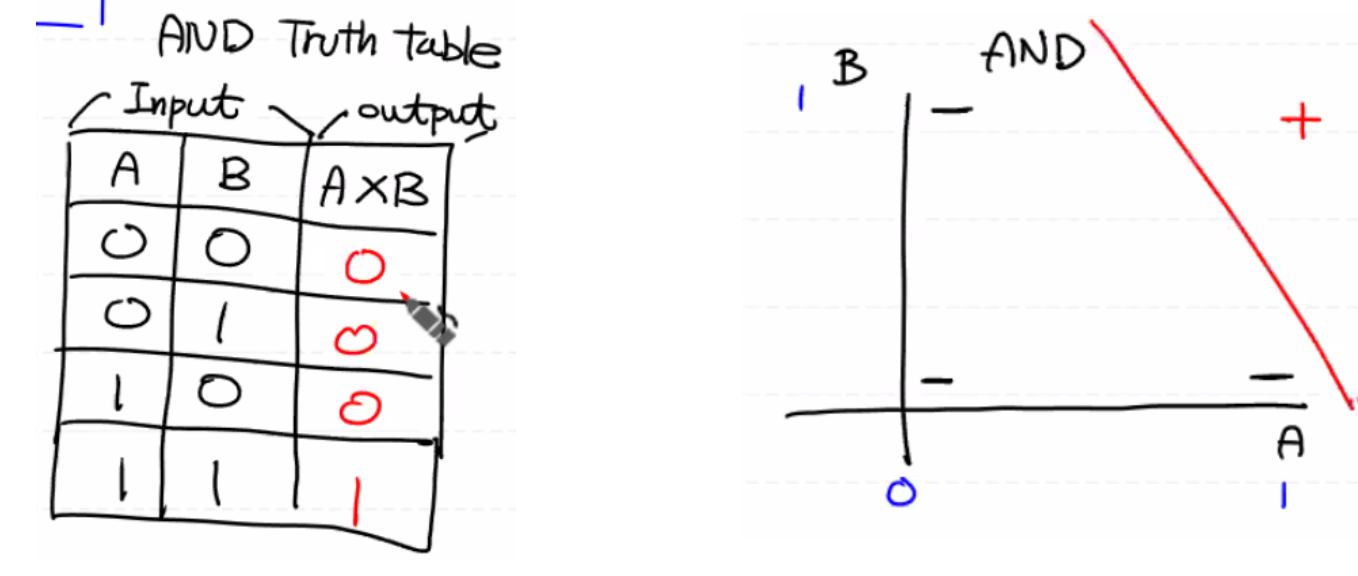 AND Truth table
Input output
A B A×B
0 0 0
0 1 0
1 0 0
1 1 1
B AND
1 − +
− −
A
0 1